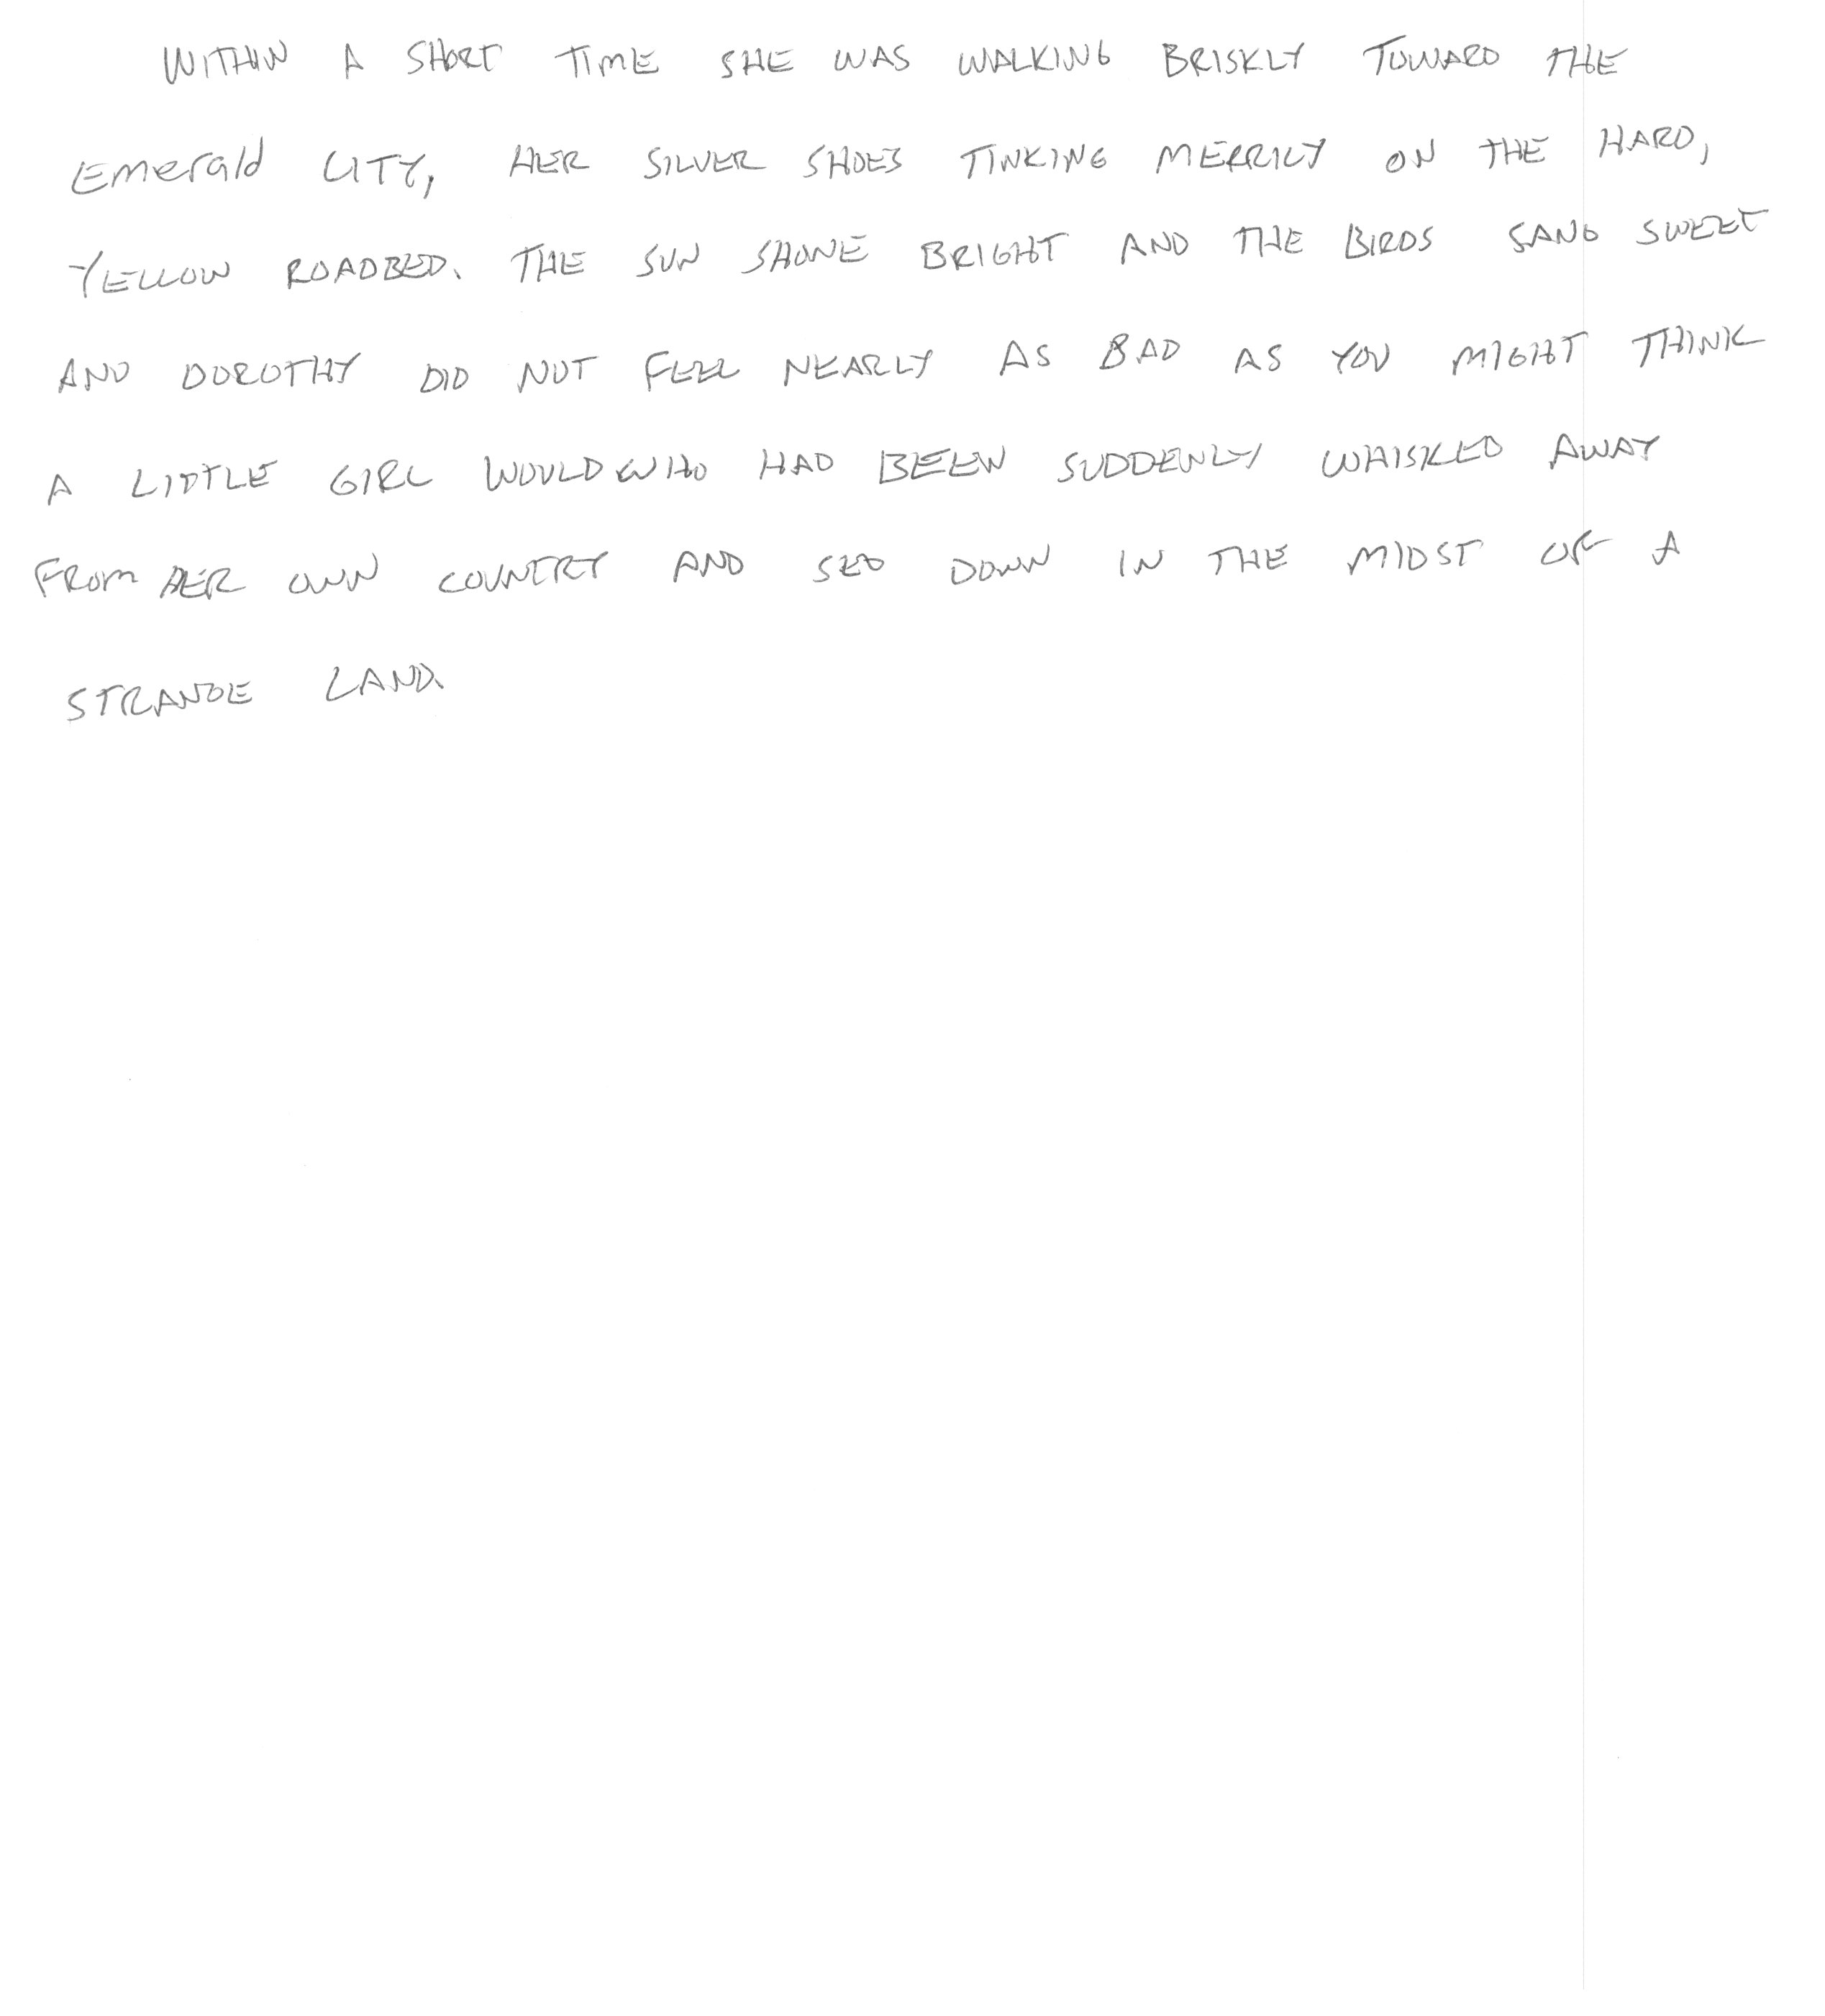 WITHIN A SHORT TIME SHE WAS WALKING BRISKLY TOWARD THE
Emerald CITY, HER SILVER SHOES TINKING MERRILY ON THE HARD,
YELLOW ROADBED. THE SUN SHONE BRIGHT AND THE BIRDS SANG SWEET
AND DOROTHY DID NOT FEEL NEARLY AS BAD AS YOU MIGHT THINK
A LITTLE GIRL WOULD WHO HAD BEEN SUDDENLY WHISKED AWAY
FROM HER OWN COUNTRY AND SED DOWN IN THE MIDST OF A
STRANGE LAND.